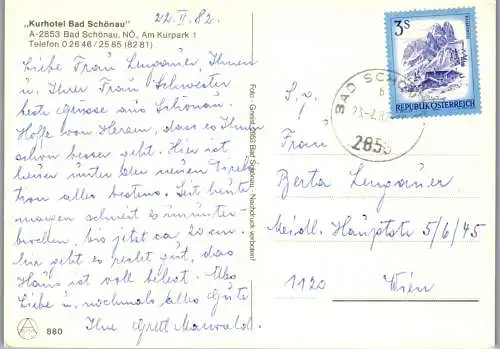 22.II.82.
"Kurhotel Bad Schönau"
A-2853 Bad Schönau, NÖ., Am Kurpark 1
Telefon 0 26 46 / 25 85 (82 81)
Liebe Frau Lengauer, Ihnen
u. Ihrer Frau Schwester
beste Grüsse aus Schönau.
Hoffe vom Herzen, dass es Ihnen
schon besser geht. Hier ist
unter der neuen
alles bestens. Seit heute
morgen schneit es ununter-
brochen, bis jetzt ca 20 cm.
Mir geht es recht gut, das
Haus ist voll belegt. Alles
Liebe u. nochmals alles Gute
Ihre Gretl Maiwald.
880
Foto: Gneist, 2853 Bad Schönau. - Nachdruck verboten!
3S
REPUBLIK ÖSTERREICH
BAD SCHÖ
b
23.-2.82
2853
S. g.
Frau
Berta Lengauer
Meidl. Hauptstr 5/6/45
1120 Wien